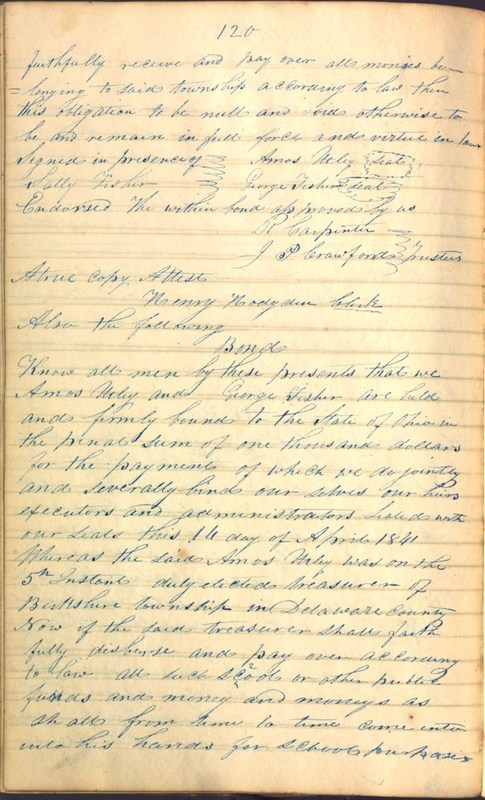 120
faithfully receive and pay over all monies be-
=longing to said township according to law then
this obligation to be null and void otherwise to
be and remain in full force and virtue in law
Signed in presence of Amos Utley Seal
Sally Fisher George Fisher Seal
Endorsed The within bond approved by us
R Carpenter
J P Crawford Trustees
A true copy Attest
Henry Hodgden Clerk
Also the following
Bond
Know all men by these presents that we
Amos Utley and George Fisher are held
and firmly bound to the State of Ohio in
the penal sum of one thousand dollars
for the payment of which we do jointly
and severally bind our selves our heirs
executors and administrators sealed with
our seals this 14 day of April 1841
Whereas the said Amos Utley was on the
5th Instant duly elected treasurer of
Berkshire township in Delaware County
Now if the said treasurer shall faith
fully disperse and pay over according
to law all such scool or other public
funds and money and moneys as
shall from time to time come into
into his hands for school purposes